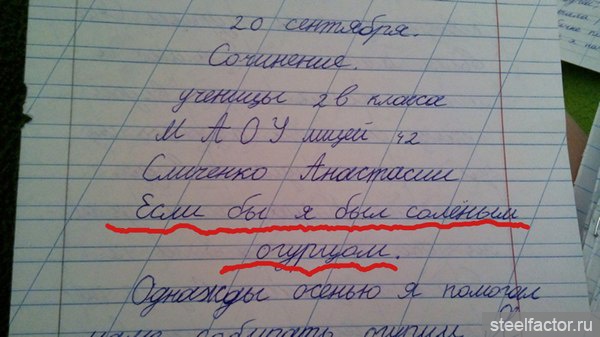 20 сентября.
Сочинение.
ученицы 2в класса
МАОУ лицей 42
Анастасии
Если бы я был солёным
огурцом.
Однажды осенью я помогал
маме собирать огурцы
steelfactor.ru